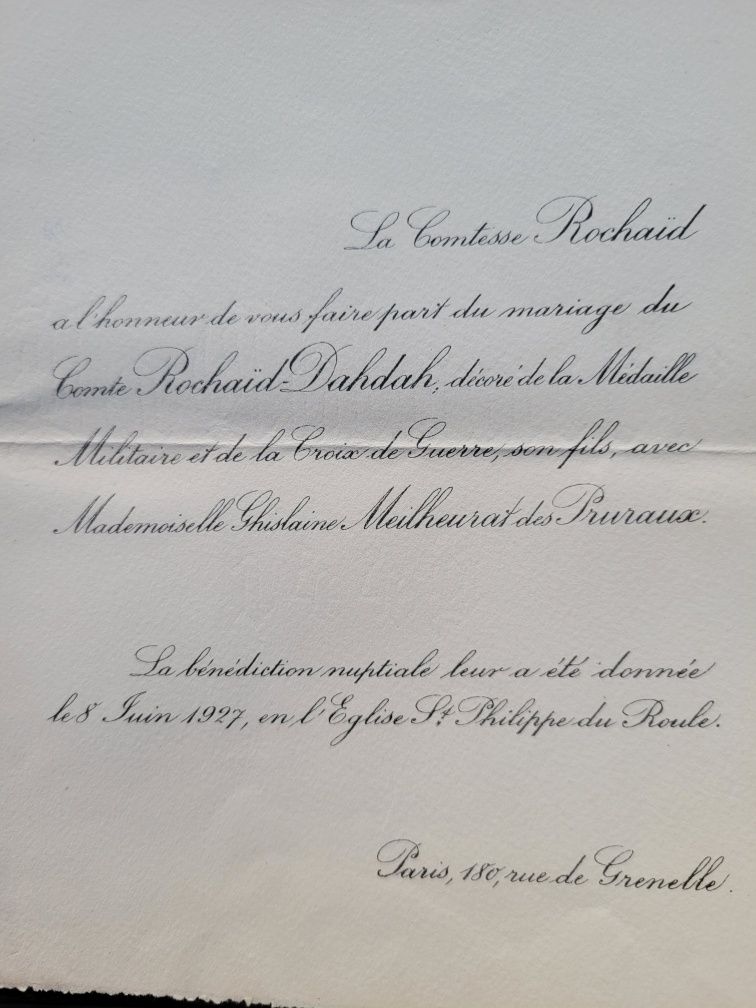 La Comtesse Rochaïd
a l'honneur de vous faire part du mariage du
Comte Rochaïd-Dahdah, décoré de la Médaille
Militaire et de la Croix de Guerre, son fils, avec
Mademoiselle Ghislaine Meilheurat des Pruraux.
La bénédiction nuptiale leur a été donnée
le 8 Juin 1927, en l'Eglise St Philippe du Roule.
Paris, 180, rue de Grenelle.